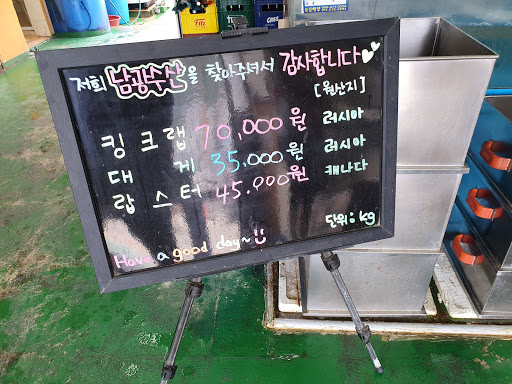 저희 남광수산을 찾아주셔서 감사합니다
[원산지]
킹크랩 70,000원 러시아
대게 35,000원 러시아
랍스터 45,000원 캐나다
단위: kg
Have a good day~